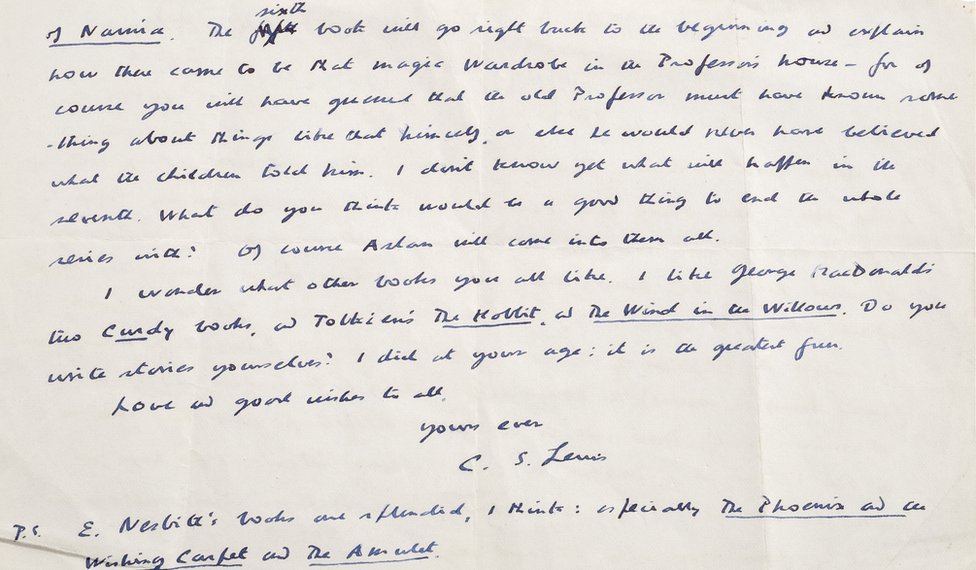 sixth
of Narnia. The fifth book will go right back to the beginning and explain
how there came to be that magic Wardrobe in the Professor's house – for of
course you will have guessed that the old Professor must have known some
-thing about things like that himself, or else he would never have believed
what the children told him. I don't know yet what will happen in the
seventh. What do you think would be a good thing to end the whole
series with? Of course Aslan will come into them all.
I wonder what other books you all like. I like George MacDonald's
two Curdy books, and Tolkien's The Hobbit, and The Wind in the Willows. Do you
write stories yourselves? I did at your age: it is the greatest fun.
Love and good wishes to all,
yours ever
C. S. Lewis
P.S. E. Nesbitt's books are splendid, I think: especially The Phoenix and the
Wishing Carpet and The Amulet.